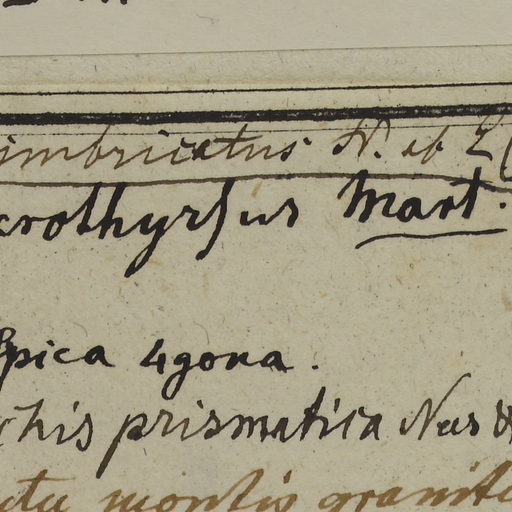 imbricatus N. ab E (
crothyrsus Mart.
Spica 4gona.
chis prismatica Nees &
montis granit